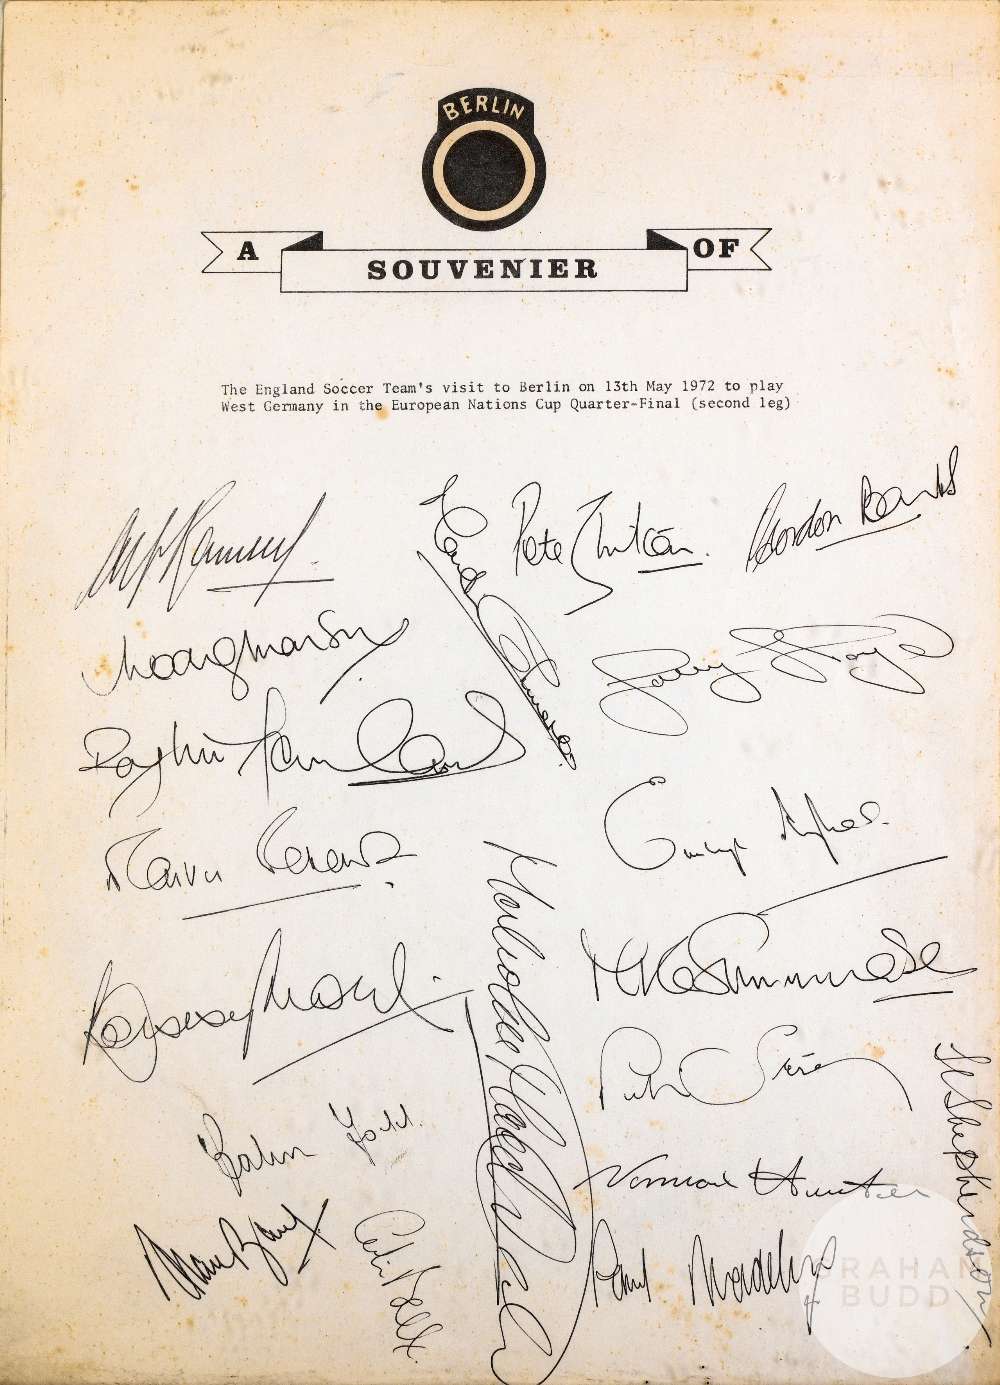 BERLIN
A SOUVENIER OF
The England Soccer Team's visit to Berlin on 13th May 1972 to play
West Germany in the European Nations Cup Quarter-Final (second leg)
Alf Ramsey.
Pete Shilton.
Gordon Banks
Larry Lloyd
Rodney Marsh
Martin Peters
Emlyn Hughes.
M Summerbee
Peter Storey
Colin Todd.
Norman Hunter
H Shepherdson
Colin Bell.
Paul Madeley
GRAHAM
BUDD